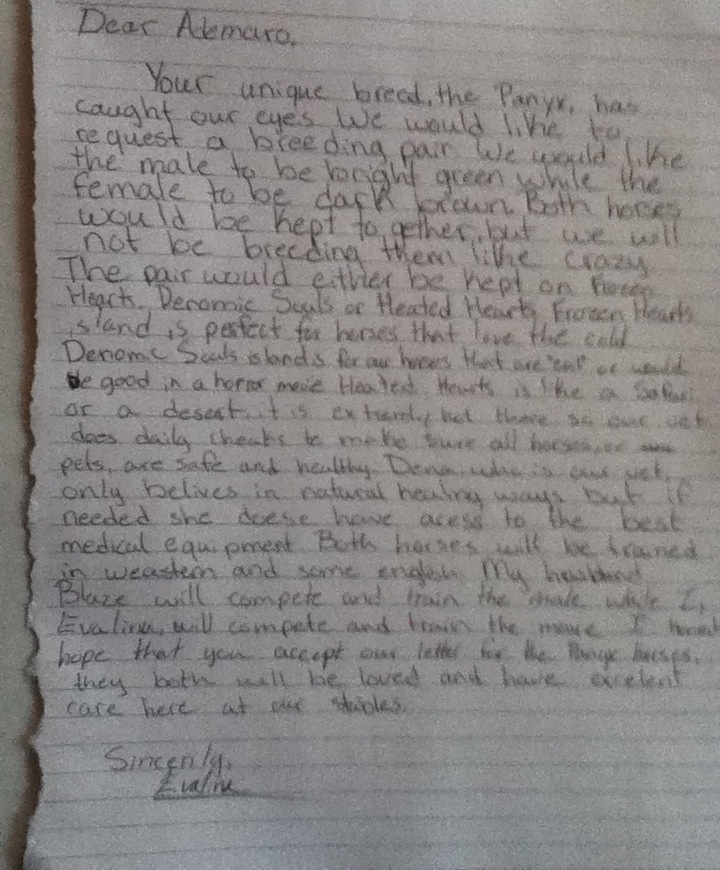 Dear Ademaro,
Your unique breed, the Panyx, has
caught our eyes. We would like to
request a breeding pair. We would like
the male to be bright green while the
female to be dark brown. Both horses
would be kept together, but we will
not be breeding them like crazy.
The pair would either be kept on Frozen
Hearts, Denomic Souls or Heated Hearts. Frozen Hearts
island is perfect for horses that love the cold.
Denomic Souls island is for our horses that are "evil" or would
be good in a horror movie. Heated Hearts is like a Safari
or a desert, it is extremely hot there so our vet
does daily cheaks to make sure all horses, or
pets, are safe and healthy. Dena, who is our vet,
only belives in natural healing ways but if
needed she doese have acess to the best
medical equipment. Both horses will be trained
in weastern and some english. My husband
Blaze will compete and train the male while I,
Evaline, will compete and train the mare. I
hope that you accept our letter for the Panyx horses,
they both will be loved and have excelent
care here at our stables.
Sincenly,
Evaline